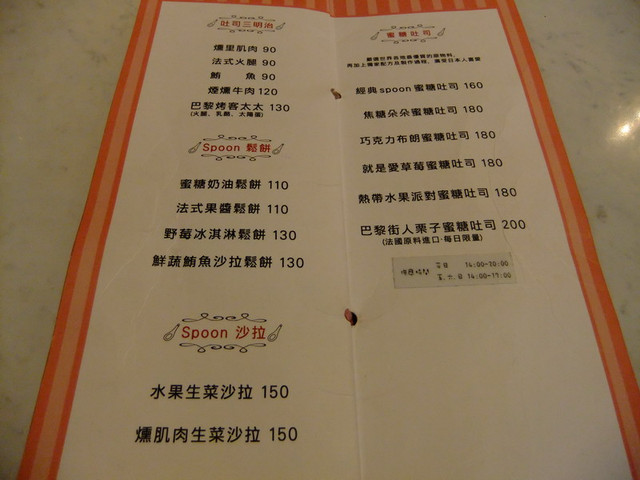 吐司三明治
燻里肌肉 90
法式火腿 90
鮪 魚 90
煙燻牛肉 120
巴黎烤客太太 130
(火腿、乳酪、太陽蛋)
Spoon 鬆餅
蜜糖奶油鬆餅 110
法式果醬鬆餅 110
野莓冰淇淋鬆餅 130
鮮蔬鮪魚沙拉鬆餅 130
Spoon 沙拉
水果生菜沙拉 150
燻肌肉生菜沙拉 150
蜜糖吐司
嚴選世界各地最優質的原物料,
再加上獨家配方及製作過程, 廣受日本人喜愛
經典spoon蜜糖吐司 160
焦糖朵朵蜜糖吐司 180
巧克力布朗蜜糖吐司 180
就是愛草莓蜜糖吐司 180
熱帶水果派對蜜糖吐司 180
巴黎街人栗子蜜糖吐司 200
(法國原料進口‧每日限量)
供應時間
平日 14:00~20:00
五.六.日 14:00~19:00